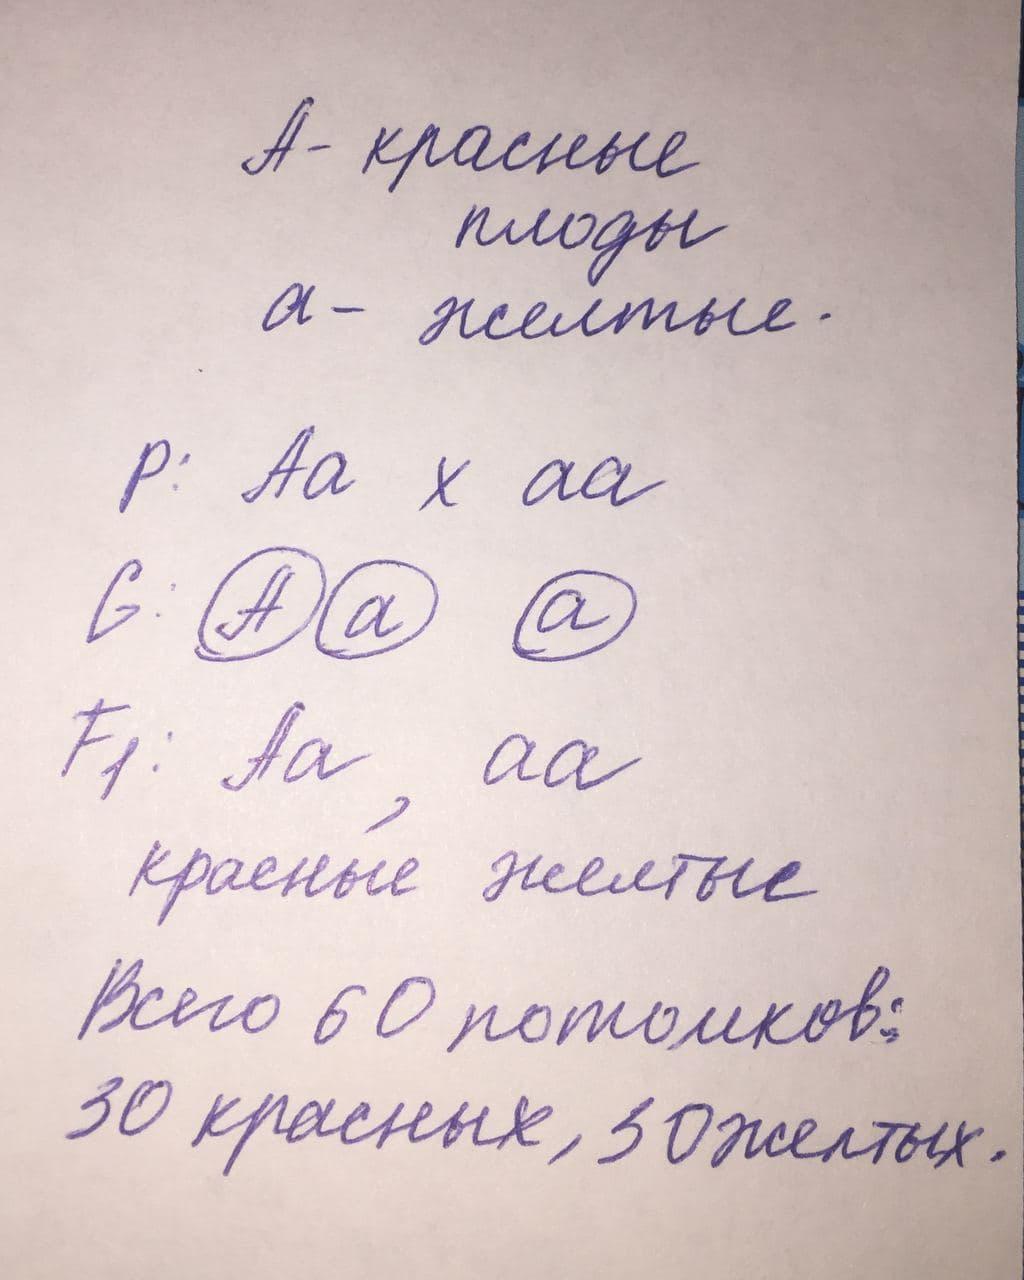 А- красные
плоды
а- желтые.
P: Аа х аа
G: А а а
F1: Аа, аа
красные желтые
Всего 60 потомков:
30 красных, 30 желтых.